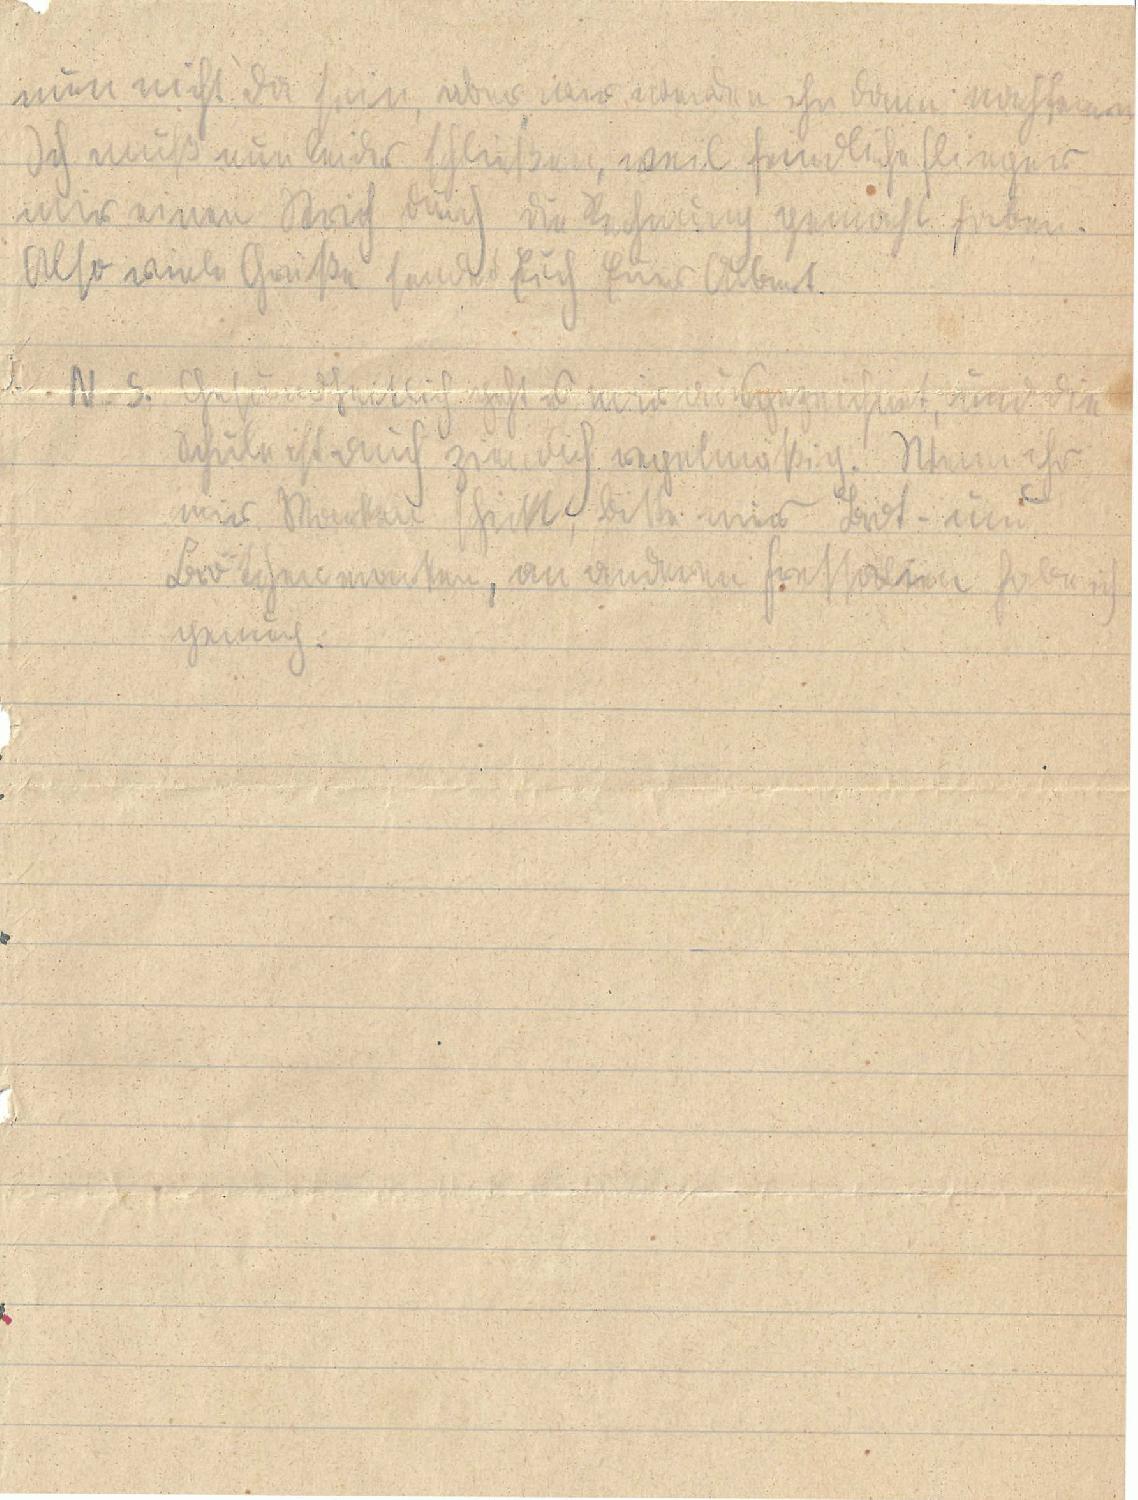 nun nicht da sein, aber wir werden ihn dann nachfeiern
Ich muß nun leider schließen, weil feindliche Flieger
mir einen Strich durch die Rechnung gemacht haben.
Also viele Grüße sendet Euch Euer Albert.
N. S. Gesundheitlich geht es mir ausgezeichnet, und die
Schule ist auch ziemlich regelmäßig. Wenn ihr
mir Marken schickt, bitte nur Brot- und
Brötchenmarken, an anderen Fressalien habe ich
genug.